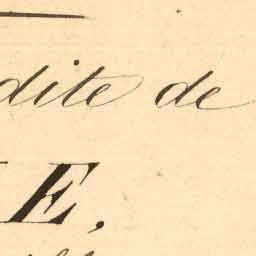 dite de
E,